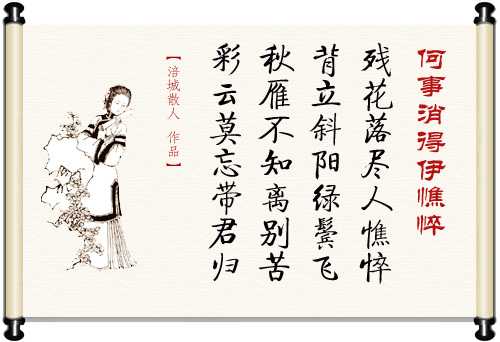 何事消得伊憔悴
残花落尽人憔悴
背立斜阳绿鬓飞
秋雁不知离别苦
彩云莫忘带君归
【涪城散人 作品】